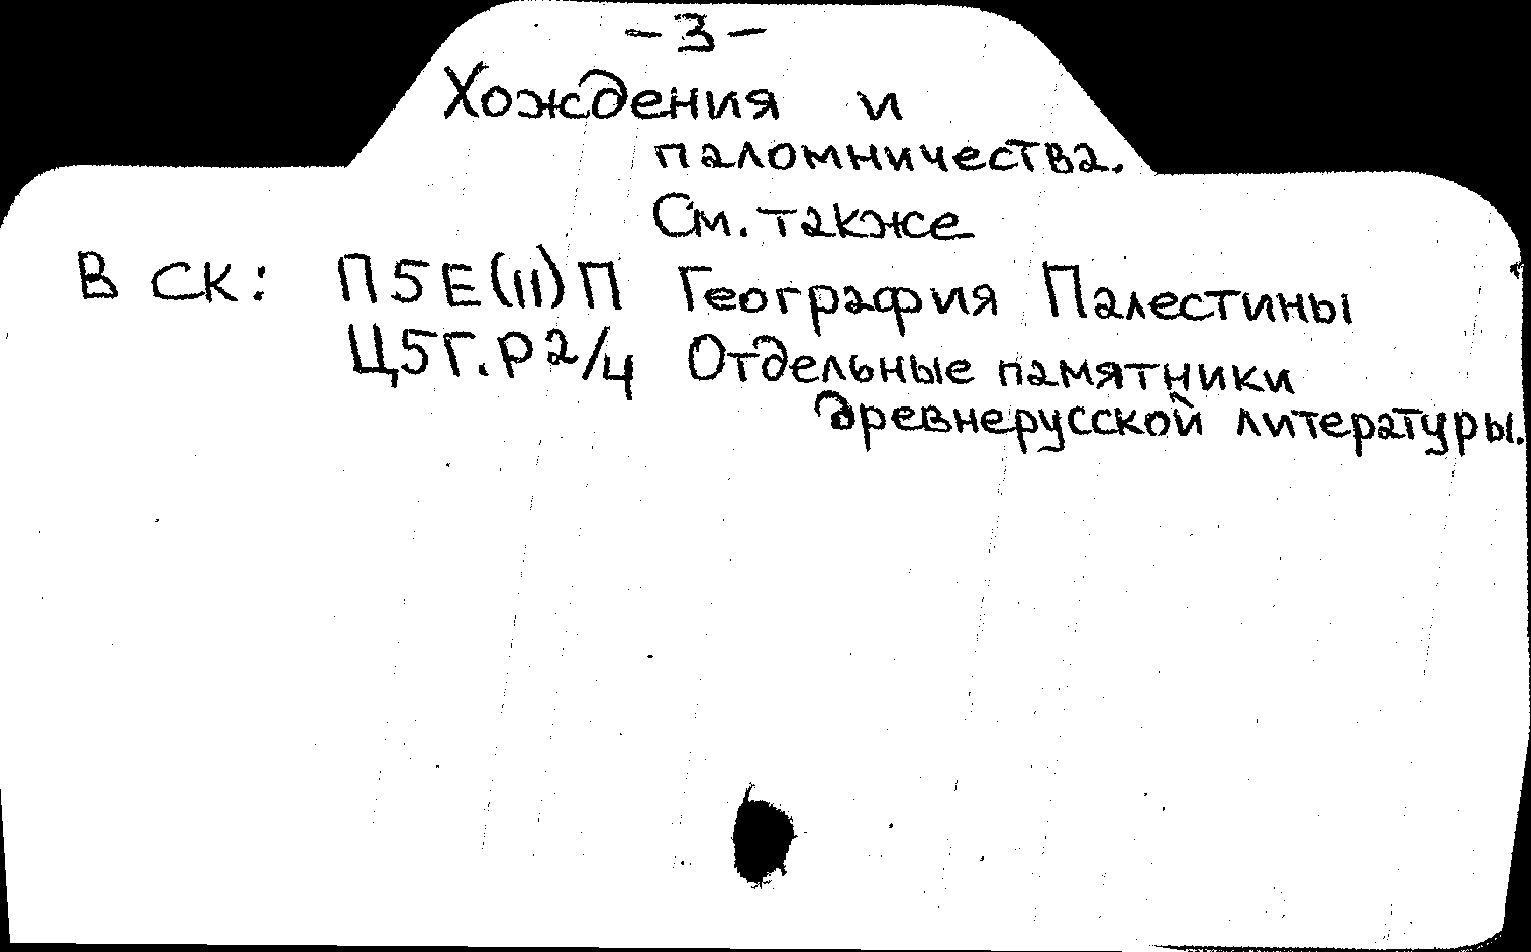 - 3 -
Хождения и
паломничества.
См. также
В СК: П5Е(11)П География Палестины
Ц5Г.Р2/4 Отдельные памятники
древнерусской литературы.